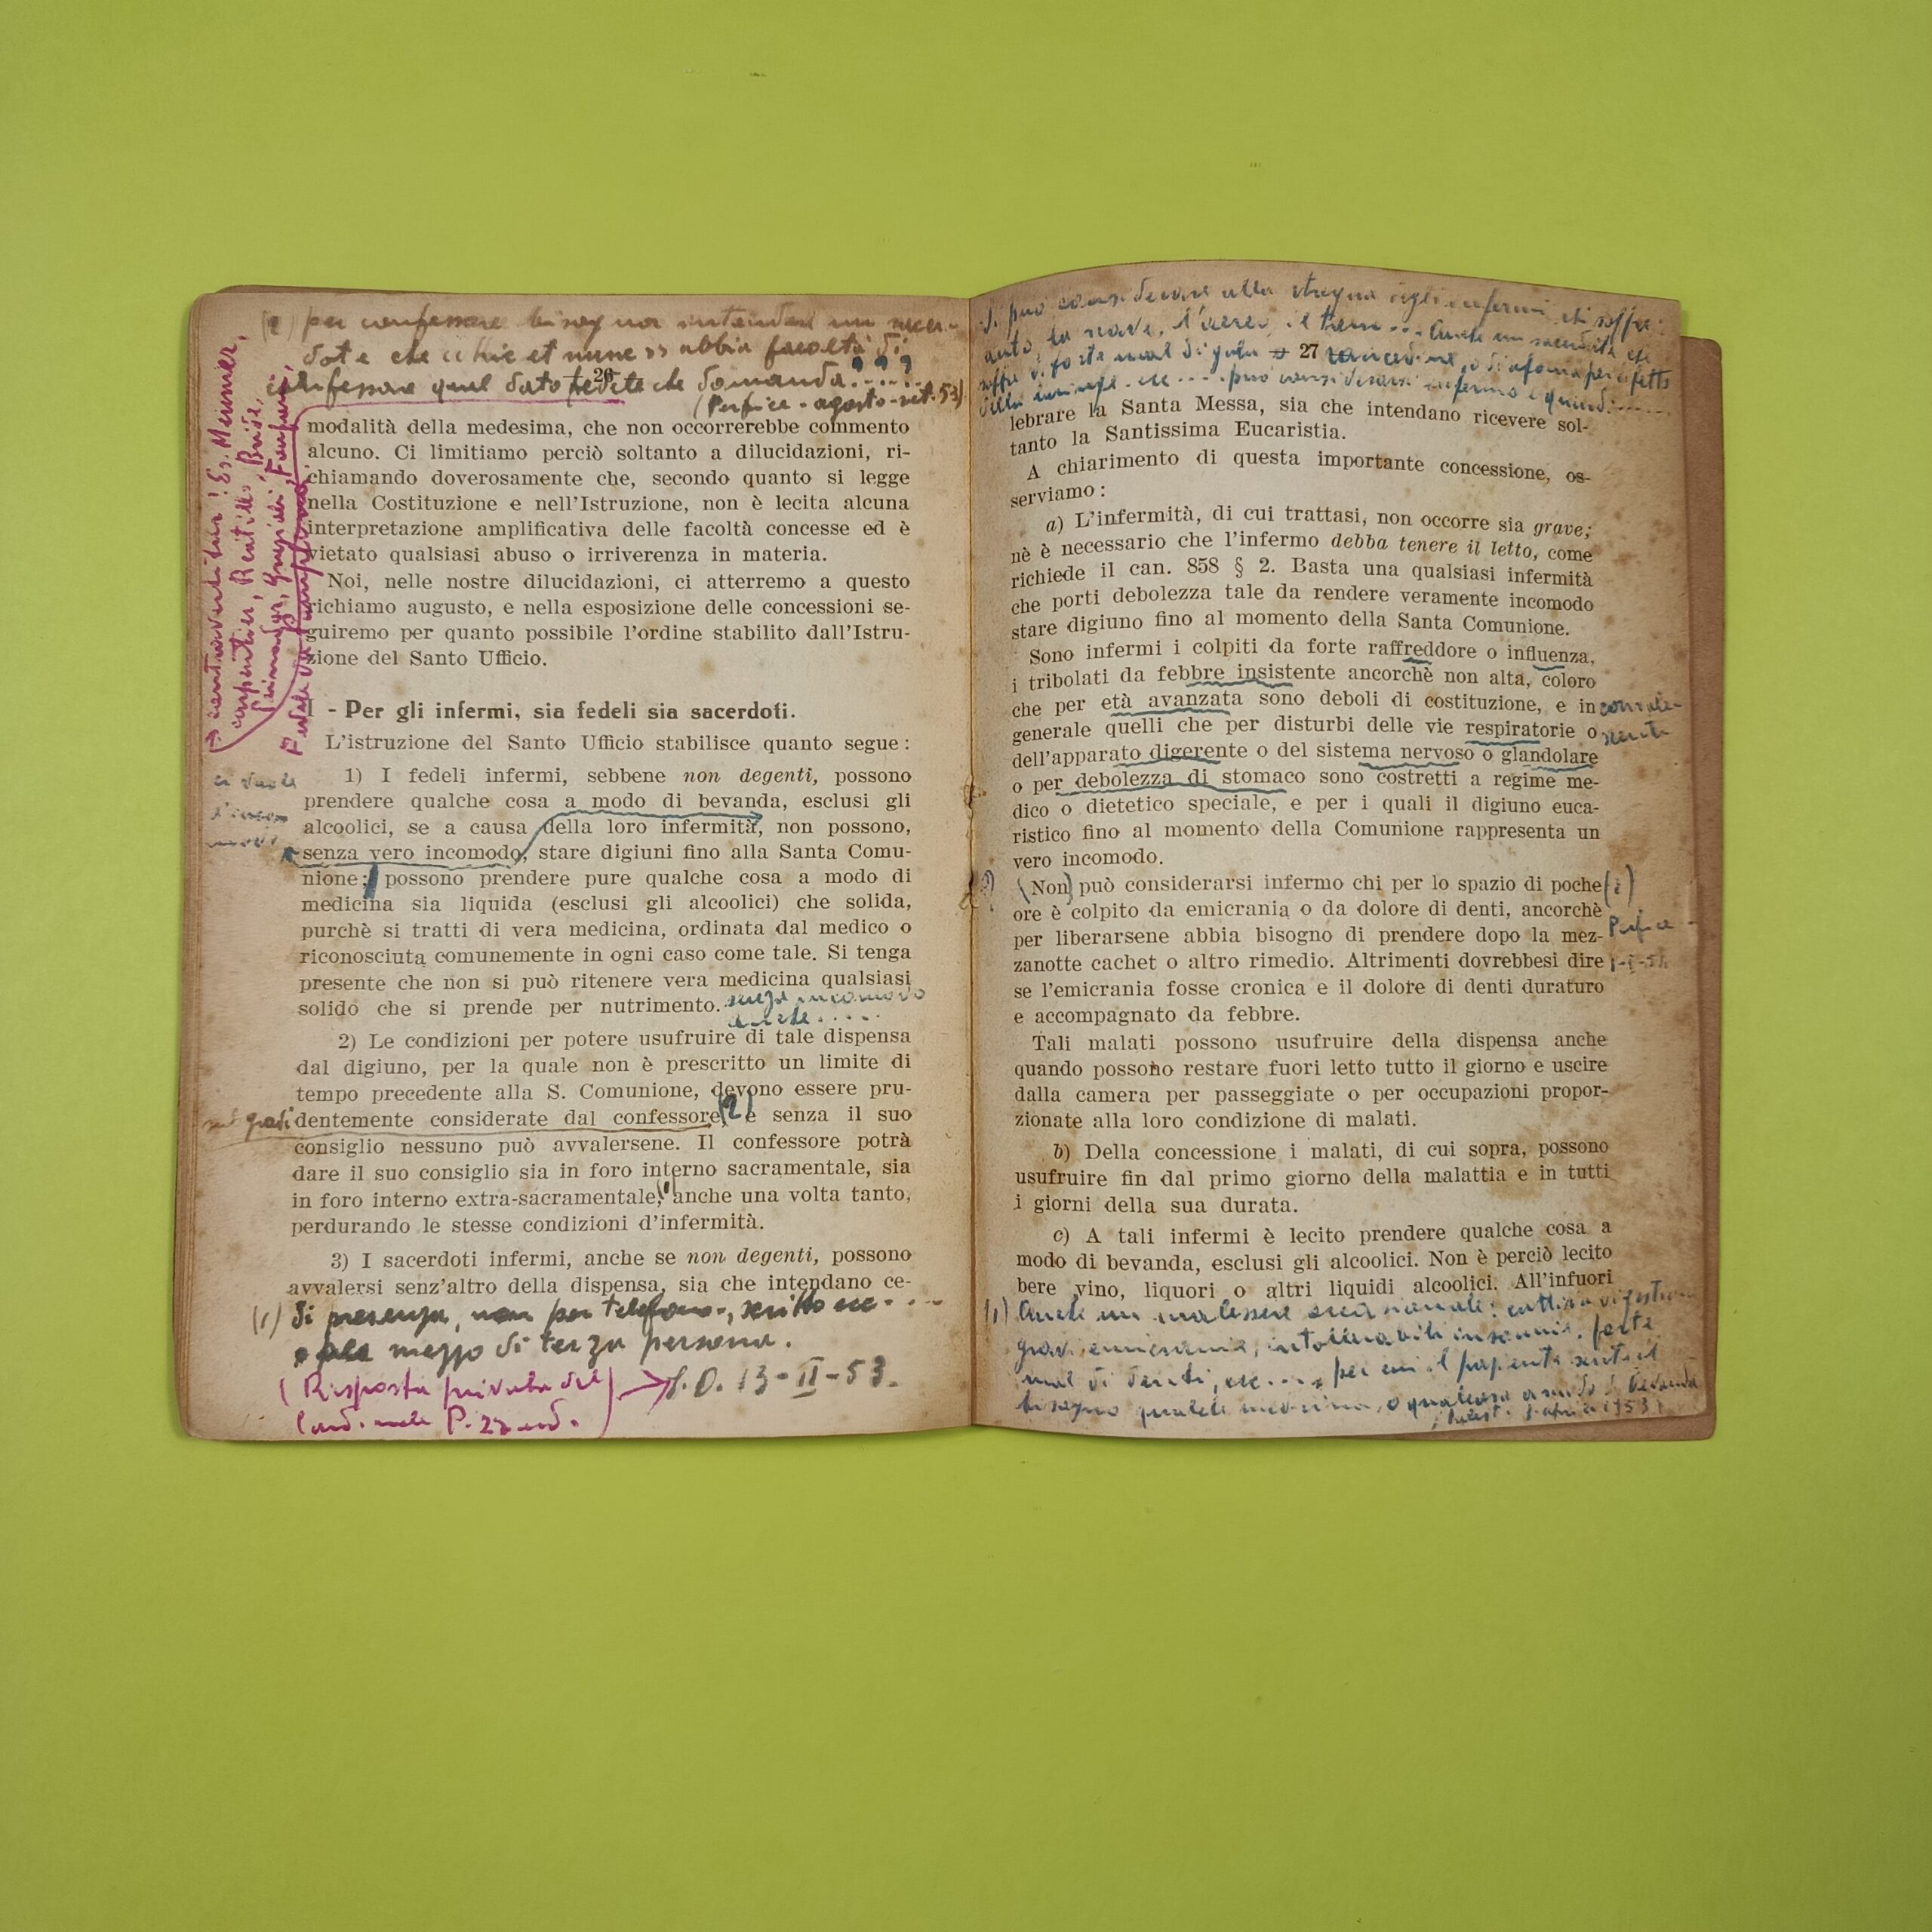 (2) per confessore bisogna intendere un sacer-
dote che "hic et nunc" abbia facoltà di
confessare quel dato fedele che domanda......
(Perfice - agosto-set. 53)
26
→ contraventitur! Es. Meismer,
Carpentier, Bride,
modalità della medesima, che non occorrerebbe commento
alcuno. Ci limitiamo perciò soltanto a dilucidazioni, ri-
chiamando doverosamente che, secondo quanto si legge
nella Costituzione e nell'Istruzione, non è lecita alcuna
interpretazione amplificativa delle facoltà concesse ed è
vietato qualsiasi abuso o irriverenza in materia.
Noi, nelle nostre dilucidazioni, ci atterremo a questo
richiamo augusto, e nella esposizione delle concessioni se-
guiremo per quanto possibile l'ordine stabilito dall'Istru-
zione del Santo Ufficio.
I - Per gli infermi, sia fedeli sia sacerdoti.
L'istruzione del Santo Ufficio stabilisce quanto segue:
1) I fedeli infermi, sebbene non degenti, possono
prendere qualche cosa a modo di bevanda, esclusi gli
alcoolici, se a causa della loro infermità, non possono,
senza vero incomodo, stare digiuni fino alla Santa Comu-
nione; possono prendere pure qualche cosa a modo di
medicina sia liquida (esclusi gli alcoolici) che solida,
purchè si tratti di vera medicina, ordinata dal medico o
riconosciuta comunemente in ogni caso come tale. Si tenga
presente che non si può ritenere vera medicina qualsiasi
solido che si prende per nutrimento. senza incomodo
anche.....
2) Le condizioni per potere usufruire di tale dispensa
dal digiuno, per la quale non è prescritto un limite di
tempo precedente alla S. Comunione, devono essere pru-
dentemente considerate dal confessore (2) e senza il suo
consiglio nessuno può avvalersene. Il confessore potrà
dare il suo consiglio sia in foro interno sacramentale, sia
in foro interno extra-sacramentale, (1) anche una volta tanto,
perdurando le stesse condizioni d'infermità.
3) I sacerdoti infermi, anche se non degenti, possono
avvalersi senz'altro della dispensa, sia che intendano ce-
(1) Di presenza, non per telefono, scritto ecc....
o per mezzo di terza persona.
(Risposta privata del → S. O. 13-II-53.
Cardinale Pizzardo)
Si può considerare alla stregua degli infermi chi soffre:
auto, la nave, l'aereo, il treno... Anche un sacerdote che
soffre di forte mal di gola o raucedine, o di afonia per difetto
della laringe ecc.... può considerarsi infermo e quindi......
27
lebrare la Santa Messa, sia che intendano ricevere sol-
tanto la Santissima Eucaristia.
A chiarimento di questa importante concessione, os-
serviamo:
a) L'infermità, di cui trattasi, non occorre sia grave;
nè è necessario che l'infermo debba tenere il letto, come
richiede il can. 858 § 2. Basta una qualsiasi infermità
che porti debolezza tale da rendere veramente incomodo
stare digiuno fino al momento della Santa Comunione.
Sono infermi i colpiti da forte raffreddore o influenza,
i tribolati da febbre insistente ancorchè non alta, coloro
che per età avanzata sono deboli di costituzione, e in convale-
generale quelli che per disturbi delle vie respiratorie o scenti
dell'apparato digerente o del sistema nervoso o glandolare
o per debolezza di stomaco sono costretti a regime me-
dico o dietetico speciale, e per i quali il digiuno euca-
ristico fino al momento della Comunione rappresenta un
vero incomodo.
(Non) può considerarsi infermo chi per lo spazio di poche (1)
ore è colpito da emicrania o da dolore di denti, ancorchè
per liberarsene abbia bisogno di prendere dopo la mez- Perfice
zanotte cachet o altro rimedio. Altrimenti dovrebbesi dire
se l'emicrania fosse cronica e il dolore di denti duraturo
e accompagnato da febbre.
Tali malati possono usufruire della dispensa anche
quando possono restare fuori letto tutto il giorno e uscire
dalla camera per passeggiate o per occupazioni propor-
zionate alla loro condizione di malati.
b) Della concessione i malati, di cui sopra, possono
usufruire fin dal primo giorno della malattia e in tutti
i giorni della sua durata.
c) A tali infermi è lecito prendere qualche cosa a
modo di bevanda, esclusi gli alcoolici. Non è perciò lecito
bere vino, liquori o altri liquidi alcoolici. All'infuori
(1) Anche un malessere occasionale: cattiva digestione
grave emicrania, intollerabile insonnia, forte
mal di denti, ecc...., per cui il paziente sente il
bisogno qualche medicina, o qualcosa a modo di bevanda
aprile 1953